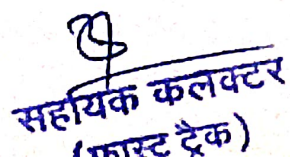 सहायक कलक्टर
(फास्ट ट्रैक)